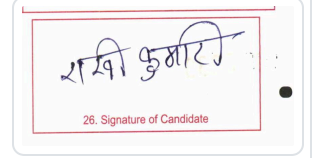 राखी कुमारी
26. Signature of Candidate